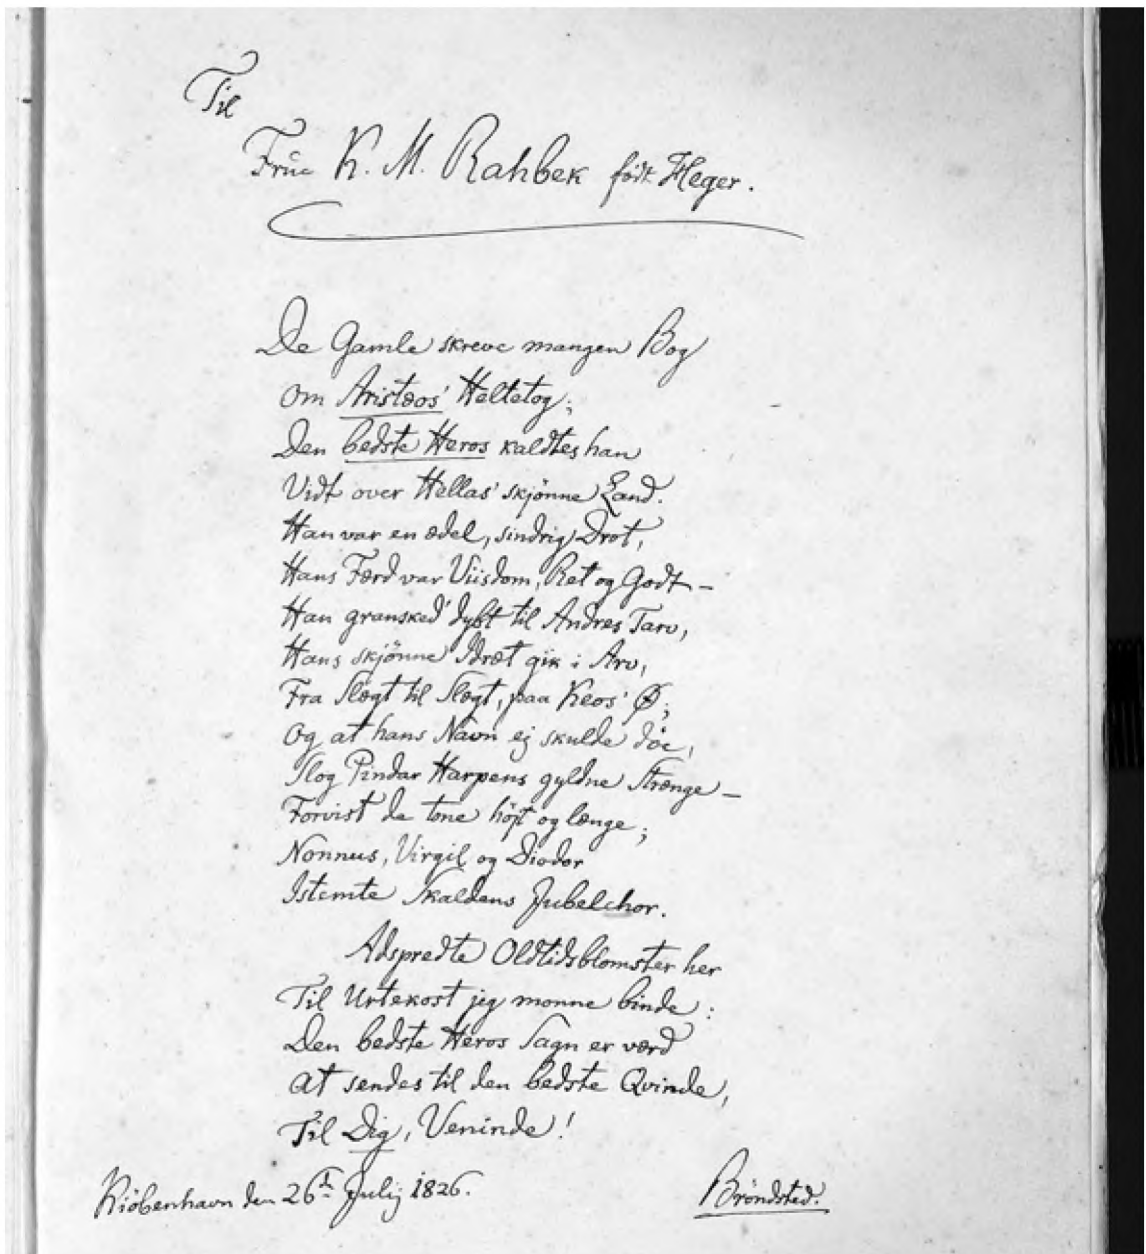 Til
Frue K. M. Rahbek født Heger.
De Gamle skreve mangen Bog
om Aristæos' Heltetog;
Den bedste Heros kaldtes han
Vidt over Hellas' skjönne Land.
Han var en ædel, sindrig Drot,
Hans Færd var Viisdom, Ret og Godt –
Han gransked' dybt til Andres Tarv,
Hans skjönne Idræt gik i Arv,
Fra Slægt til Slægt, paa Keos' Ø;
Og at hans Navn ej skulde döe,
Slog Pindar Harpens gyldne Strænge –
Forvist de tone höjt og længe;
Nonnus, Virgil og Diodor
Istemte Skaldens Jubelchor.
Adspredte Oldtidsblomster her
Til Urtekost jeg monne binde:
Den bedste Heros Sagn er værd
At sendes til den bedste Qvinde,
Til Dig, Veninde!
Kiöbenhavn den 26de Julij 1826.
Bröndsted.